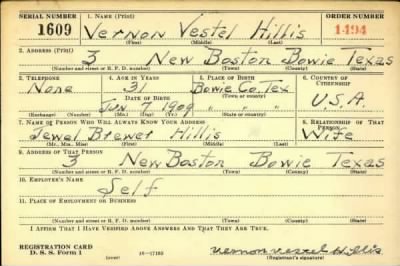 SERIAL NUMBER 1. NAME (Print) ORDER NUMBER
1609 Vernon Vestel Hillis 1494
(First) (Middle) (Last)
2. ADDRESS (Print)
3 New Boston Bowie Texas
(Number and street or R. F. D. number) (Town) (County) (State)
3. TELEPHONE 4. AGE IN YEARS 5. PLACE OF BIRTH 6. COUNTRY OF CITIZENSHIP
None 31 Bowie Co, Tex
DATE OF BIRTH (Town or county)
Jan 7 1909 " " " U.S.A.
(Exchange) (Number) (Mo.) (Day) (Yr.) (State or country)
7. NAME OF PERSON WHO WILL ALWAYS KNOW YOUR ADDRESS 8. RELATIONSHIP OF THAT PERSON
Jewel Brewer Hillis Wife
(Mr., Mrs., Miss) (First) (Middle) (Last)
9. ADDRESS OF THAT PERSON
3 New Boston Bowie Texas
(Number and street or R. F. D. number) (Town) (County) (State)
10. EMPLOYER'S NAME
Self
11. PLACE OF EMPLOYMENT OR BUSINESS
(Number and street or R. F. D. number) (Town) (County) (State)
I AFFIRM THAT I HAVE VERIFIED ABOVE ANSWERS AND THAT THEY ARE TRUE.
REGISTRATION CARD
D. S. S. Form 1 (over) 16—17105 Vernon Vestel Hillis
(Registrant's signature)